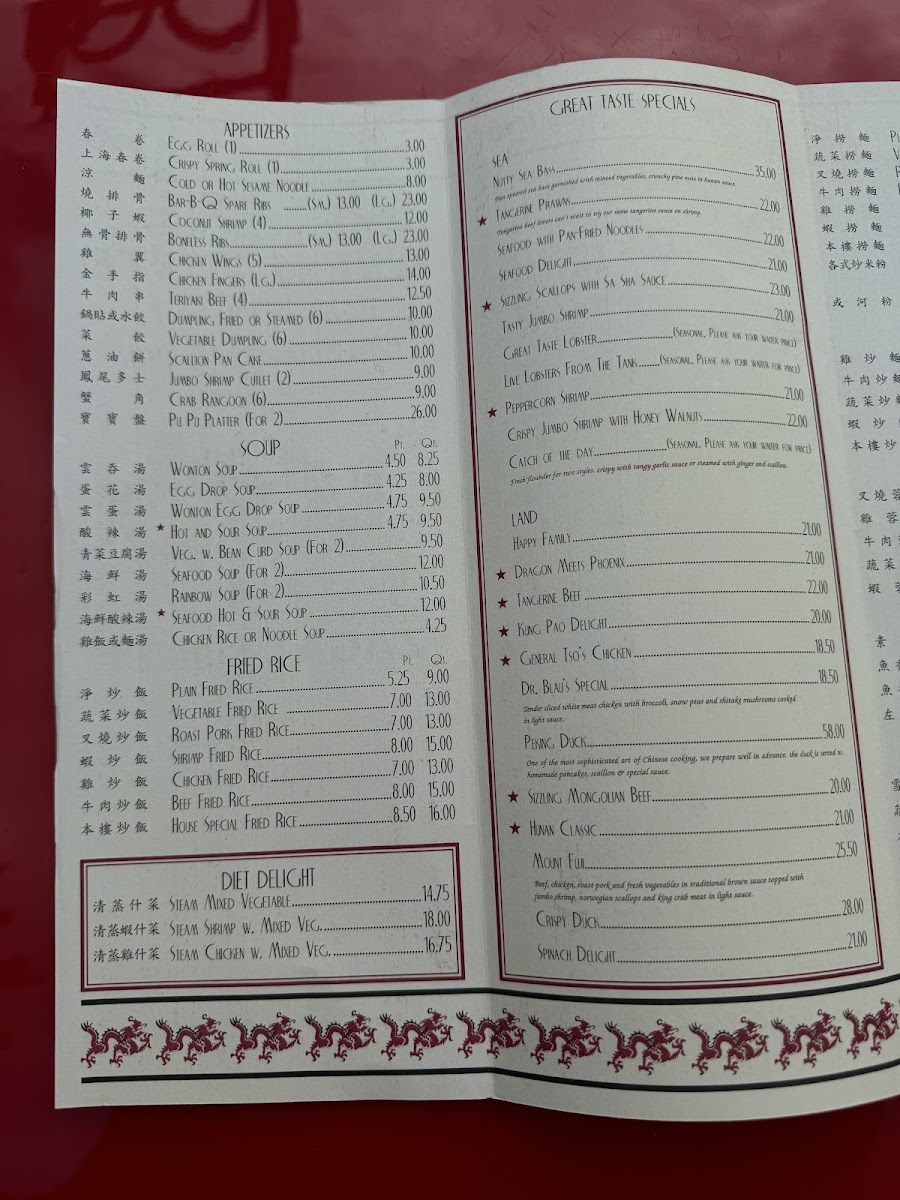 APPETIZERS
春卷 EGG ROLL (1) 3.00
上海春卷 CRISPY SPRING ROLL (1) 3.00
涼麵 COLD OR HOT SESAME NOODLE 8.00
燒排骨 BAR-B-Q SPARE RIBS (SM.) 13.00 (LG.) 23.00
椰子蝦 COCONUT SHRIMP (4) 12.00
無骨排骨 BONELESS RIBS (SM.) 13.00 (LG.) 23.00
雞翼 CHICKEN WINGS (5) 13.00
金手指 CHICKEN FINGERS (LG.) 14.00
牛肉串 TERIYAKI BEEF (4) 12.50
鍋貼或水餃 DUMPLING FRIED OR STEAMED (6) 10.00
菜餃 VEGETABLE DUMPLING (6) 10.00
蔥油餅 SCALLION PAN CAKE 10.00
鳳尾多士 JUMBO SHRIMP CUTLET (2) 9.00
蟹角 CRAB RANGOON (6) 9.00
寶寶盤 PU PU PLATTER (FOR 2) 26.00
SOUP
PT. QT.
雲吞湯 WONTON SOUP 4.50 8.25
蛋花湯 EGG DROP SOUP 4.25 8.00
雲蛋湯 WONTON EGG DROP SOUP 4.75 9.50
酸辣湯 ★ HOT AND SOUR SOUP 4.75 9.50
青菜豆腐湯 VEG. W. BEAN CURD SOUP (FOR 2) 9.50
海鮮湯 SEAFOOD SOUP (FOR 2) 12.00
彩虹湯 RAINBOW SOUP (FOR 2) 10.50
海鮮酸辣湯 ★ SEAFOOD HOT & SOUR SOUP 12.00
雞飯或麵湯 CHICKEN RICE OR NOODLE SOUP 4.25
FRIED RICE
PT. QT.
淨炒飯 PLAIN FRIED RICE 5.25 9.00
蔬菜炒飯 VEGETABLE FRIED RICE 7.00 13.00
叉燒炒飯 ROAST PORK FRIED RICE 7.00 13.00
蝦炒飯 SHRIMP FRIED RICE 8.00 15.00
雞炒飯 CHICKEN FRIED RICE 7.00 13.00
牛肉炒飯 BEEF FRIED RICE 8.00 15.00
本樓炒飯 HOUSE SPECIAL FRIED RICE 8.50 16.00
DIET DELIGHT
清蒸什菜 STEAM MIXED VEGETABLE 14.75
清蒸蝦什菜 STEAM SHRIMP W. MIXED VEG. 18.00
清蒸雞什菜 STEAM CHICKEN W. MIXED VEG. 16.75
GREAT TASTE SPECIALS
SEA
NUTTY SEA BASS 35.00
Pan seared sea bass garnished with minced vegetables, crunchy pine nuts in hunan sauce.
★ TANGERINE PRAWNS 22.00
Tangerine beef lovers can't wait to try our same tangerine sauce on shrimp.
SEAFOOD WITH PAN-FRIED NOODLES 22.00
SEAFOOD DELIGHT 21.00
★ SIZZLING SCALLOPS WITH SA SHA SAUCE 23.00
TASTY JUMBO SHRIMP 21.00
GREAT TASTE LOBSTER (SEASONAL, PLEASE ASK YOUR WAITER PRICE)
LIVE LOBSTERS FROM THE TANK (SEASONAL, PLEASE ASK YOUR WAITER FOR PRICE)
★ PEPPERCORN SHRIMP 21.00
CRISPY JUMBO SHRIMP WITH HONEY WALNUTS 22.00
CATCH OF THE DAY (SEASONAL, PLEASE ASK YOUR WAITER FOR PRICE)
Fresh flounder for two styles, crispy with tangy garlic sauce or steamed with ginger and scallion.
LAND
HAPPY FAMILY 21.00
★ DRAGON MEETS PHOENIX 21.00
★ TANGERINE BEEF 22.00
★ KUNG PAO DELIGHT 20.00
★ GENERAL TSO'S CHICKEN 18.50
DR. BLAU'S SPECIAL 18.50
Tender sliced white meat chicken with broccoli, snow peas and shitake mushrooms cooked
in light sauce.
PEKING DUCK 58.00
One of the most sophisticated art of Chinese cooking, we prepare well in advance. the duck is served w.
homemade pancakes, scallion & special sauce.
★ SIZZLING MONGOLIAN BEEF 20.00
★ HUNAN CLASSIC 21.00
MOUNT FUJI 25.50
Beef, chicken, roast pork and fresh vegetables in traditional brown sauce topped with
jumbo shrimp, norwegian scallops and king crab meat in light sauce.
CRISPY DUCK 28.00
SPINACH DELIGHT 21.00
淨撈麵
蔬菜撈麵
叉燒撈麵
牛肉撈麵
雞撈麵
蝦撈麵
本樓撈麵
各式炒米粉
或河粉
雞炒麵
牛肉炒麵
蔬菜炒
蝦炒
本樓炒
叉燒蓉
雞蓉
牛肉
蔬菜
蝦
素
魚
魚
左